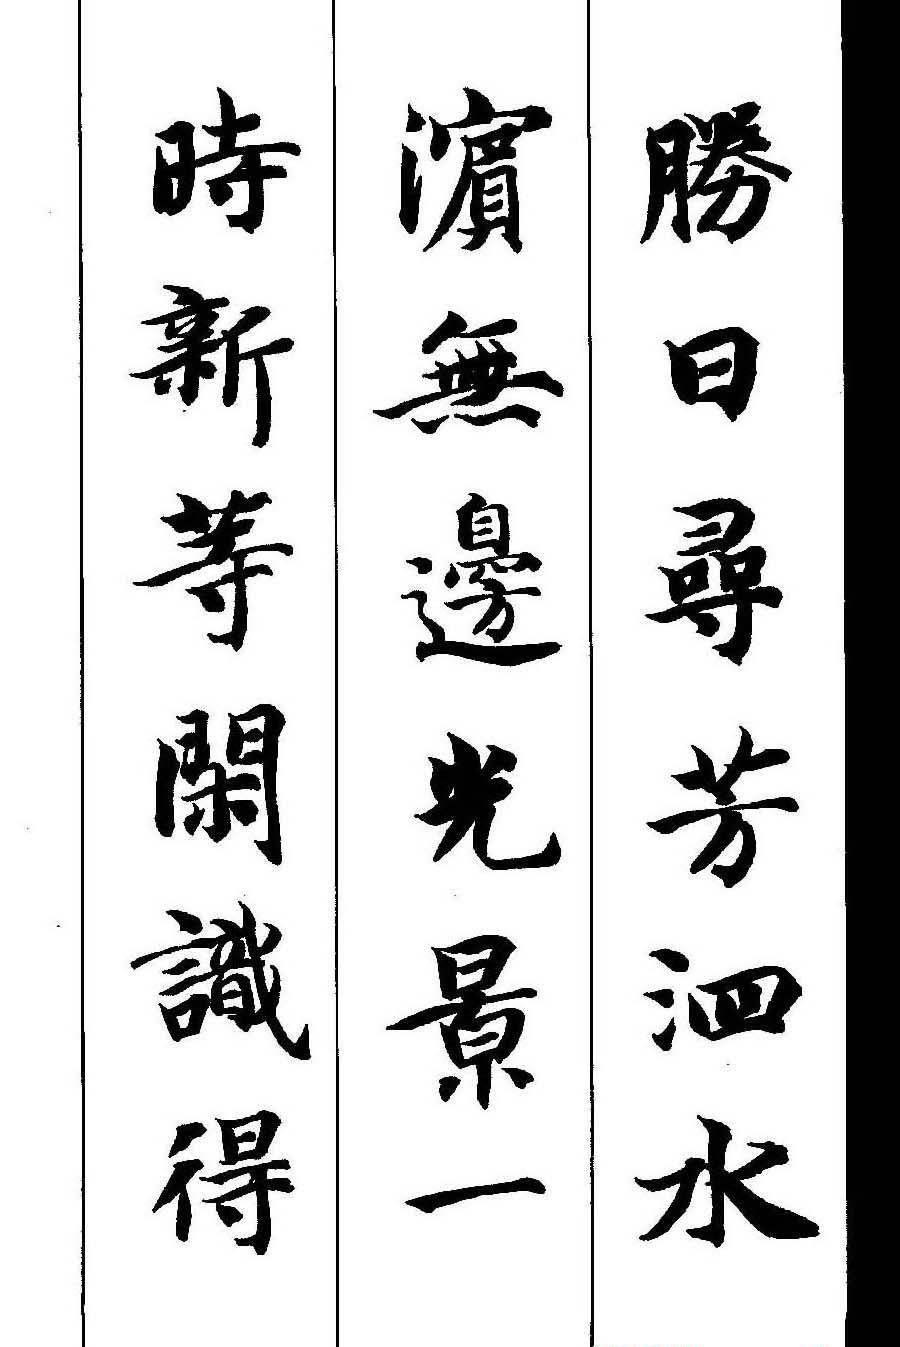 勝日尋芳泗水
濵無邊光景一
時新等閑識得